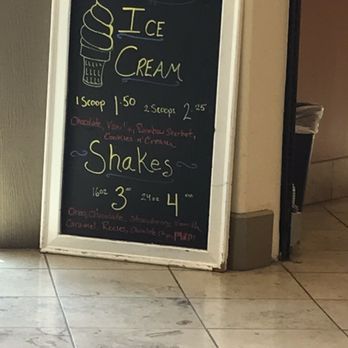 ICE
CREAM
1 Scoop 1.50 2 Scoops 2.25
Chocolate, Vanilla, Rainbow Sherbet,
Cookies n' Cream
Shakes
16oz 3 24oz 4
Oreo, Chocolate, Strawberry,
Caramel, Reeses, Chocolate